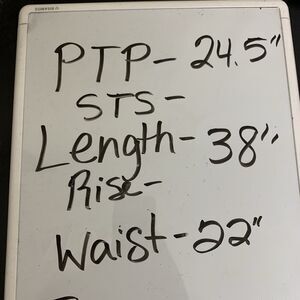 PTP- 24.5"
STS-
Length- 38"
Rise-
Waist- 22"